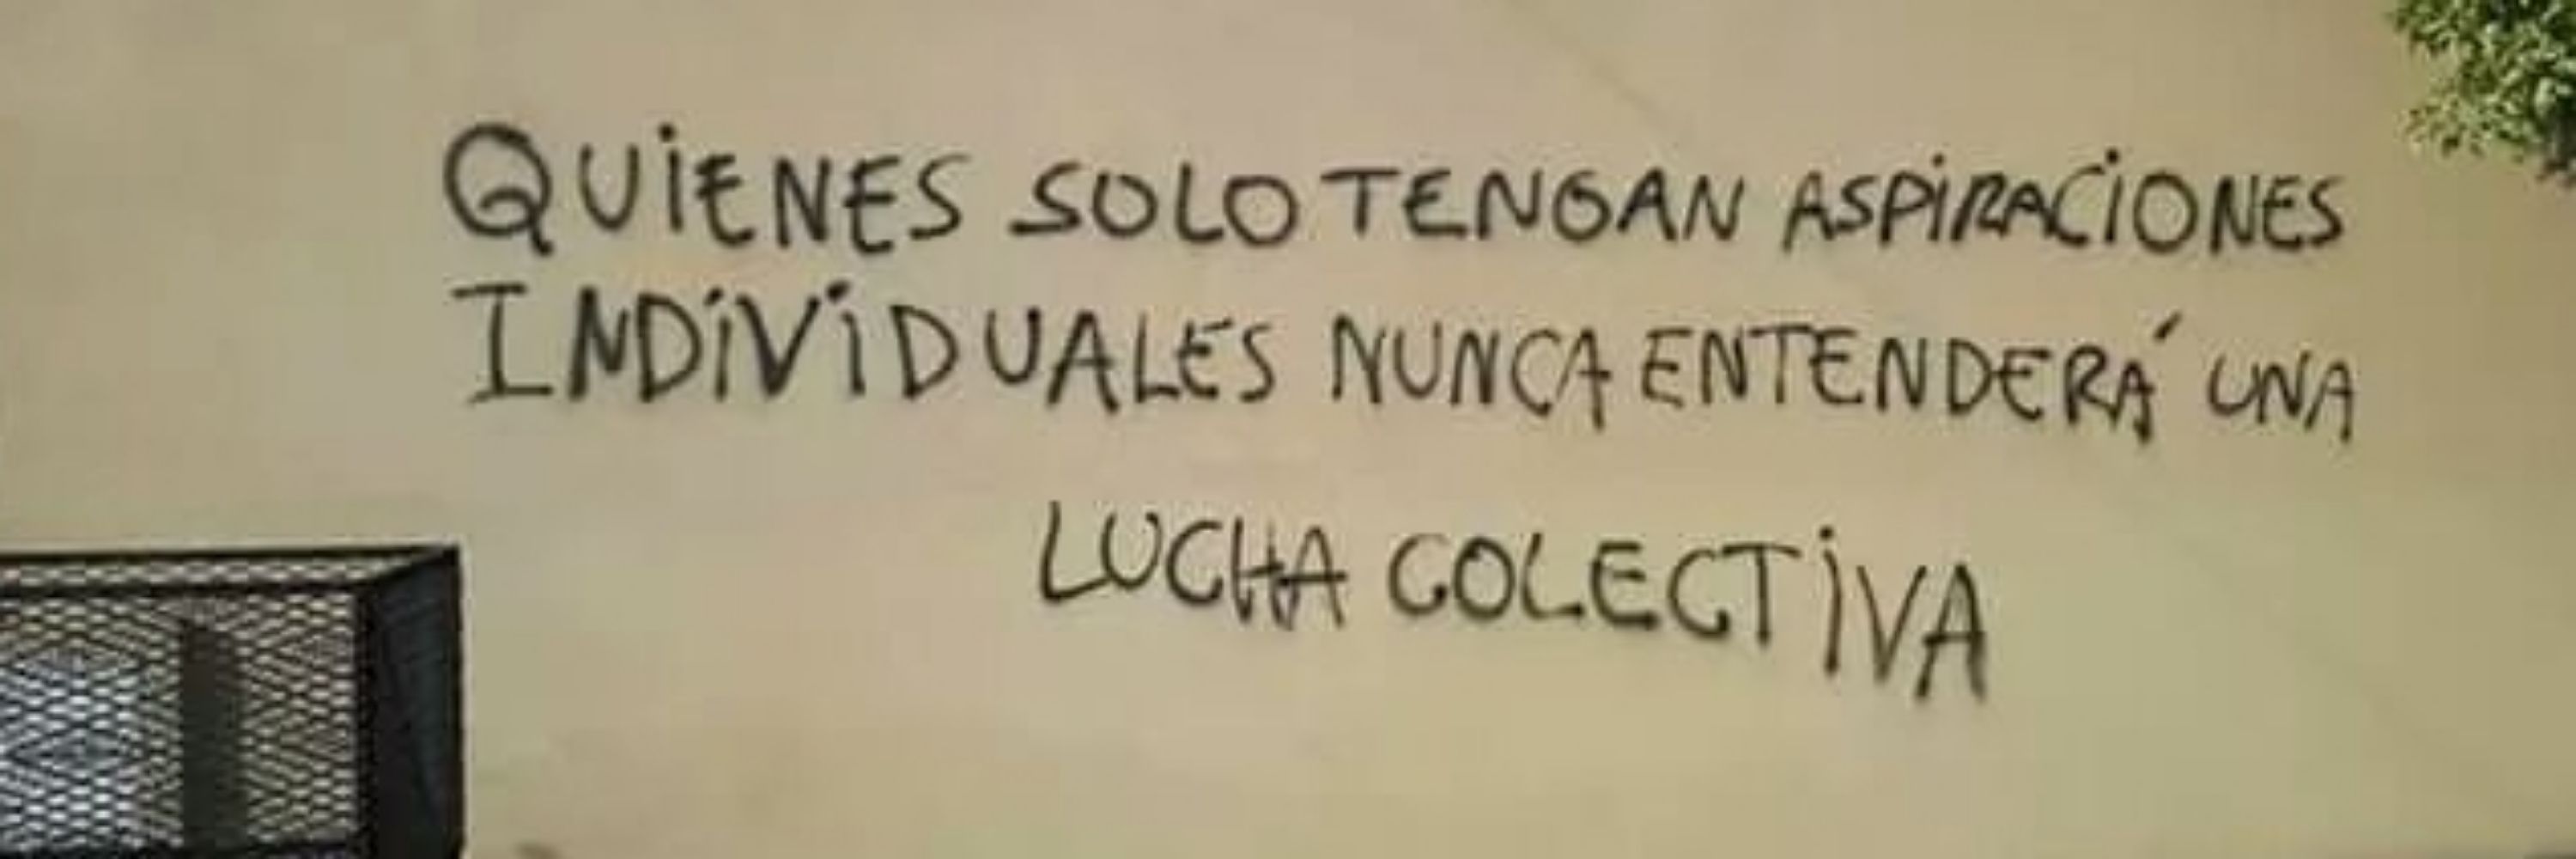 QUIENES SOLO TENGAN ASPIRACIONES
INDIVIDUALES NUNCA ENTENDERÁ UNA
LUCHA COLECTIVA